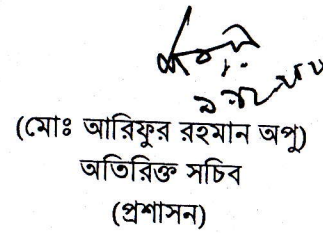 (মোঃ আরিফুর রহমান অপু)
অতিরিক্ত সচিব
(প্রশাসন)